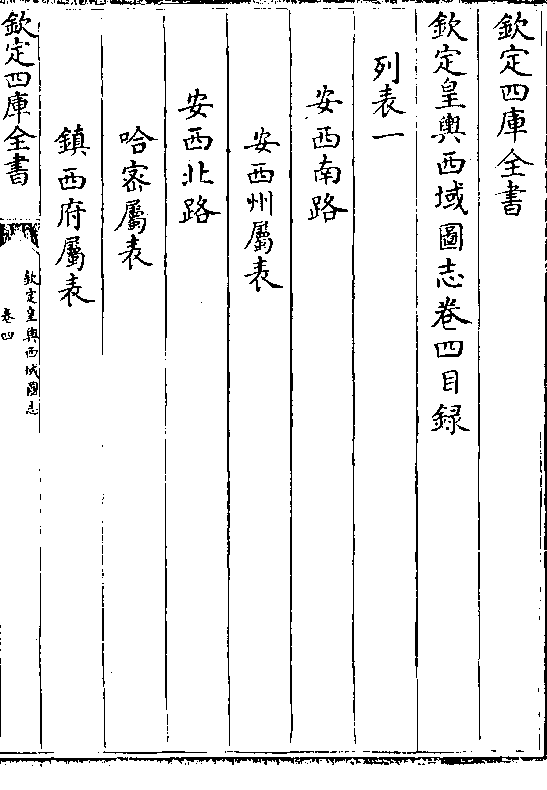 欽定四庫全書
欽定皇輿西域圖志卷四目録
列表一
安西南路
安西州屬表
安西北路
哈宻屬表
鎮西府屬表
欽定四庫全書
欽定皇輿西域圖志
卷四